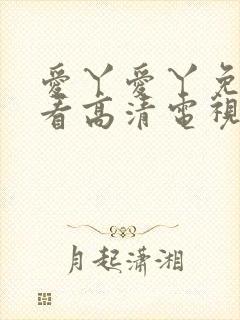 愛丫愛丫免
看高清電視
月起瀟湘